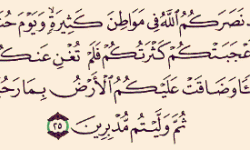 نَصَرَكُمُ ٱللَّهُ فِى مَوَاطِنَ كَثِيرَةٍ ۙ وَيَوْمَ
أَعْجَبَتْكُمْ كَثْرَتُكُمْ فَلَمْ تُغْنِ عَنكُمْ
وَضَاقَتْ عَلَيْكُمُ ٱلْأَرْضُ بِمَا
ثُمَّ وَلَّيْتُم مُّدْبِرِينَ ٢٥